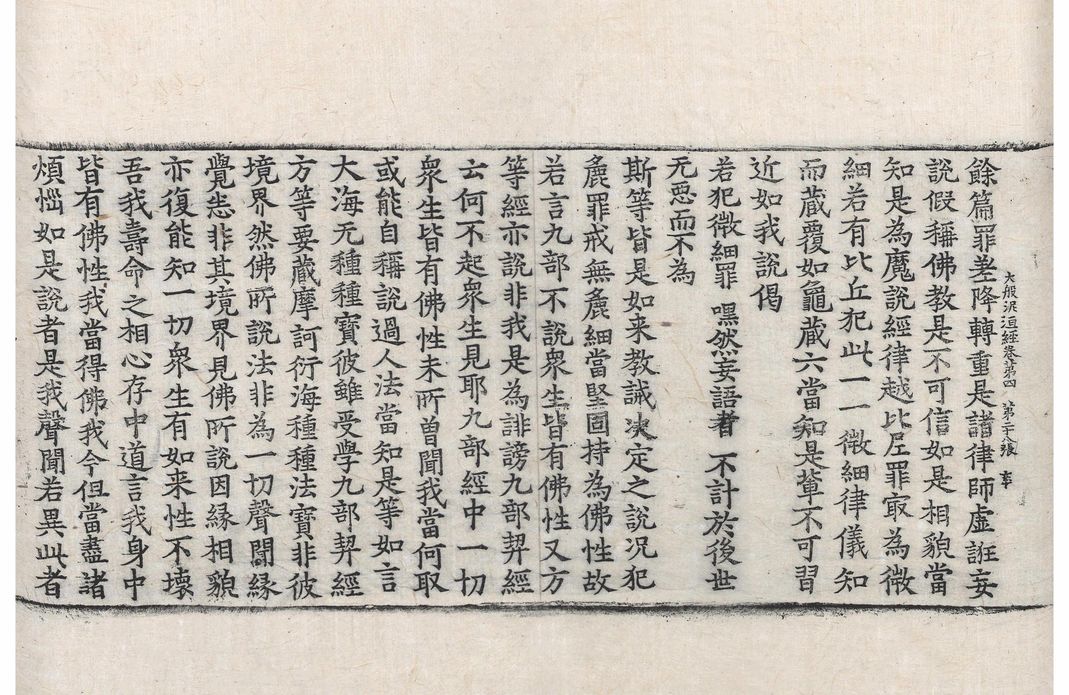 餘篇罪差降轉重是諸律師虛誑妄
大般泥洹經卷第四 第二十八張 
說假稱佛教是不可信如是相貌當
知是為魔說經律越比丘罪㝡為微
細若有比丘犯此一一微細律儀知
而藏覆如龜藏六當知是輩不可習
近如我說偈
若犯微細罪 嘿然妄語者 不計於後世
无惡而不為
斯等皆是如来教誡决定之說况犯
麁罪戒無麁細當堅固持為佛性故
若言九部不說衆生皆有佛性又方
等經亦說非我是為誹謗九部契經
云何不起衆生見耶九部經中一切
衆生皆有佛性未所曾聞我當何取
或能自稱說過人法當知是等如言
大海无種種寶彼雖受學九部契經
方等要藏摩訶衍海種種法寶非彼
境界然佛所說法非為一切聲聞緣
覺悉非其境界見佛所說因緣相貌
亦復能知一切衆生有如来性不壞
吾我壽命之相心存中道言我身中
皆有佛性我當得佛我今但當盡諸
煩惱如是說者是我聲聞若異此者